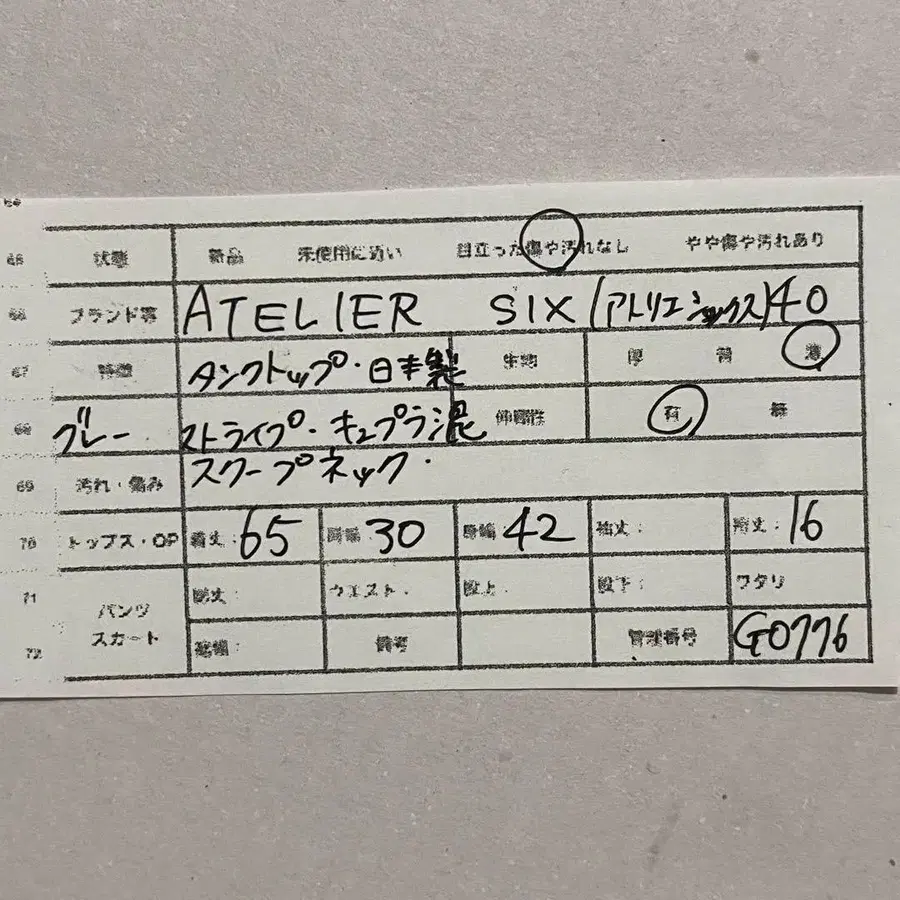 68 状態 新品 未使用に近い 目立った傷や汚れなし やや傷や汚れあり
66 ブランド等 ATELIER SIX (アトリエシックス) 40
67 特徴 タンクトップ・日本製 生地 厚 普 薄
68 グレー ストライプ・キュプラ混 伸縮性 有 無
69 汚れ・傷み スクープネック・
70 トップス・OP 着丈: 65 肩幅 30 身幅 42 袖丈: 裄丈: 16
71 パンツ 総丈: ウエスト: 股上: 股下: ワタリ
72 スカート 裾幅: 備考 管理番号 G0776